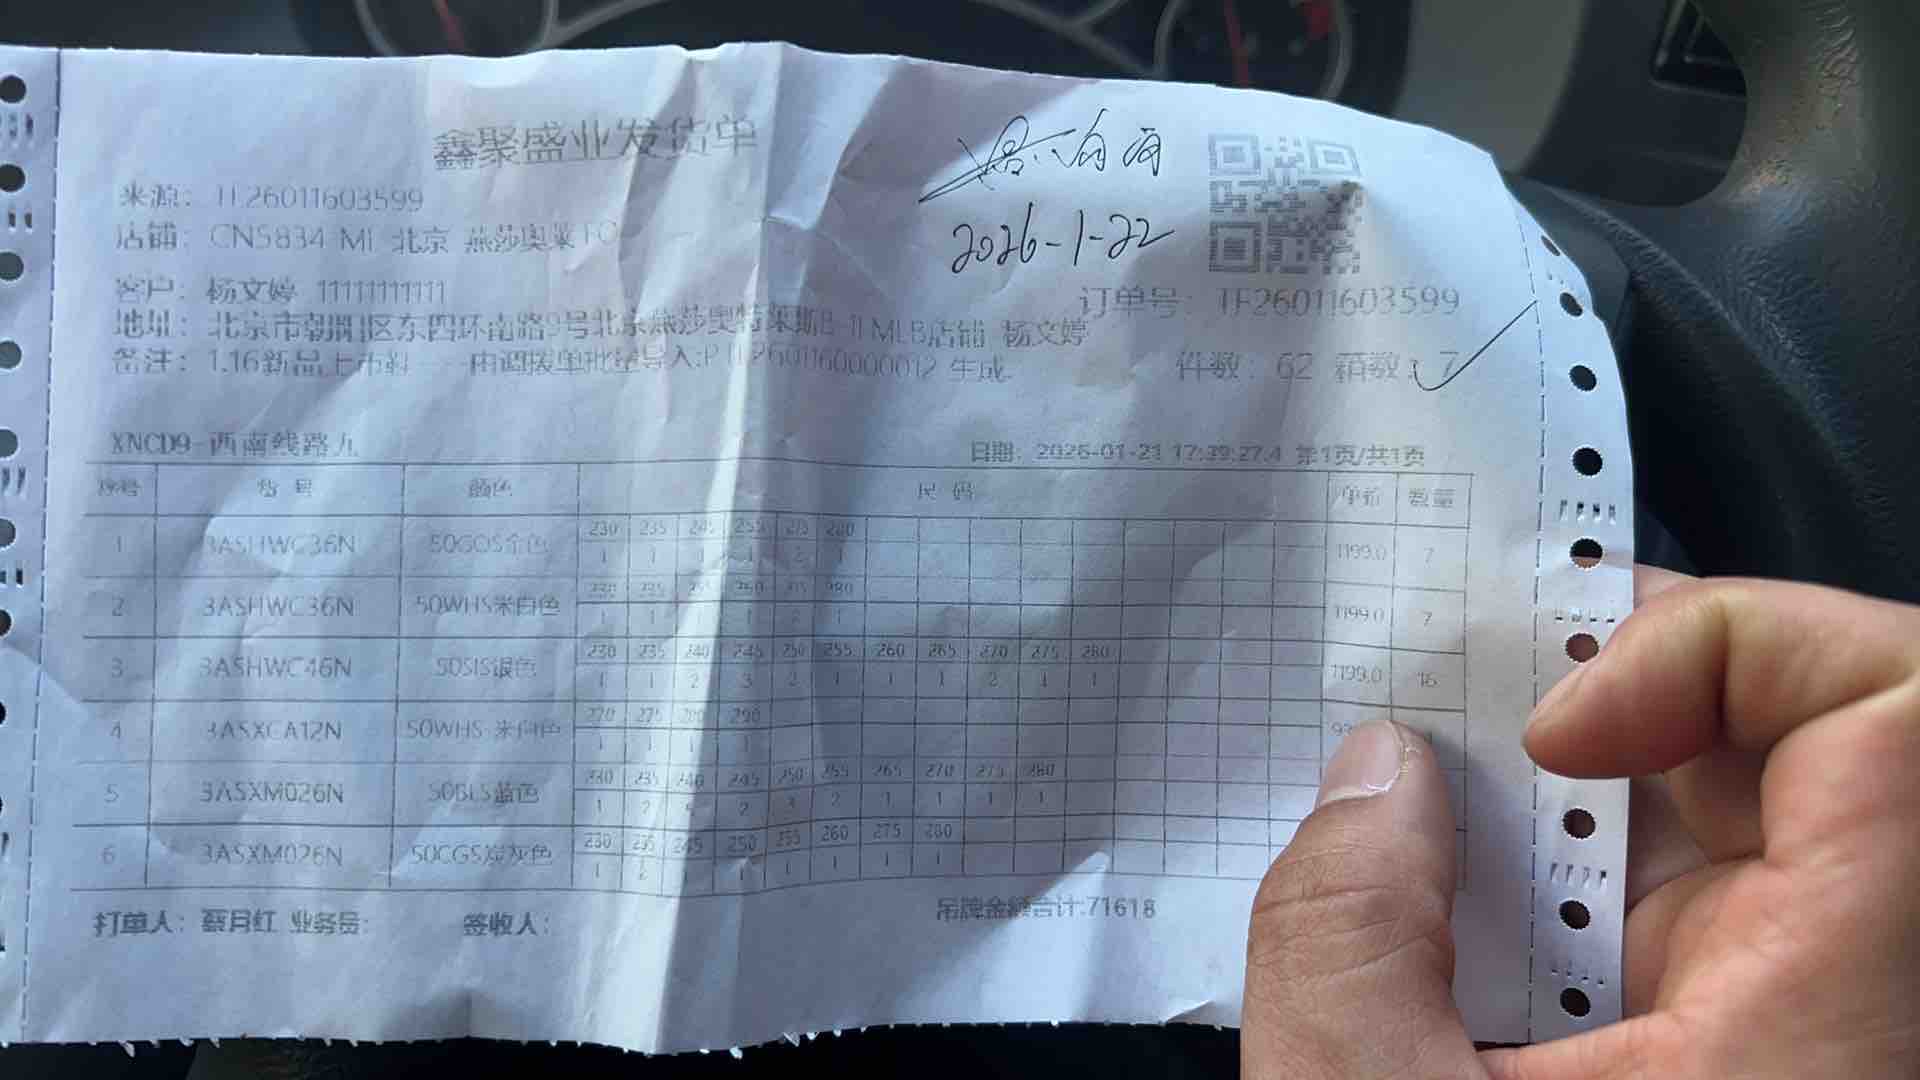 鑫聚盛业发货单
2026-1-22
来源: TF26011603599
店铺: CN5834 ML 北京 燕莎奥莱FO
客户: 杨文婷 11111111111
订单号: TF26011603599
地址: 北京市朝阳区东四环南路9号北京燕莎奥特莱斯B-1F MLB店铺 杨文婷
备注: 1.16新品上市鞋
生成.
件数: 62 箱数: 7
XNCD9-西南线路九
日期: 2026-01-21 17:39:27.4 第1页/共1页
序号 货号 颜色 尺码 单价 数量
230 235 245 255 275 280
1 3ASHWC36N 50GOS金色 1199.0 7
1 1 1 1 2 1
230 235 250 280
2 3ASHWC36N 50WHS米白色 1199.0 7
1 1 1 2 1
230 235 240 245 250 255 260 265 270 275 280
3 3ASHWC46N 50SIS银色 1199.0 16
1 1 2 3 2 1 1 1 2 1 1
270 275 280 290
4 3ASXCA12N 50WHS 米白色
1 1 1 1
230 235 240 245 250 255 265 270 275 280
5 3ASXM026N 50BLS蓝色
1 2 2 3 2 1 1 1 1
230 235 245 250 255 260 275 280
6 3ASXM026N 50CGS炭灰色
1 2 1 1 1 1 1
打单人: 蔡月红 业务员: 签收人: 吊牌金额合计:71618